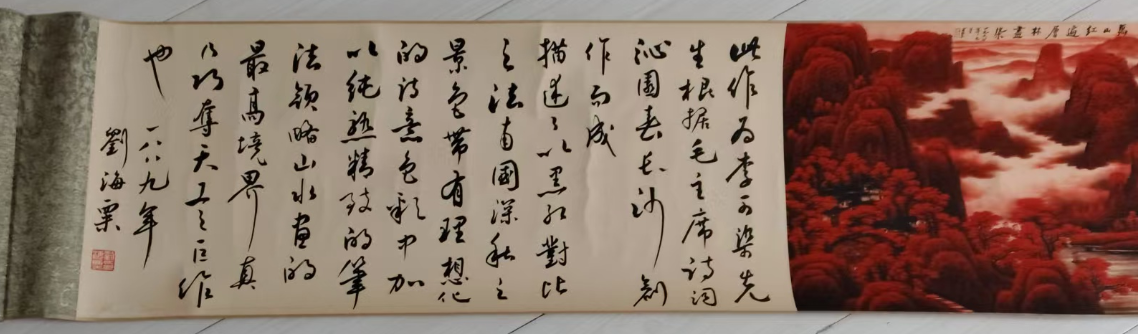 萬山红遍层林盡染
此作为李可染先
生根据毛主席诗词
沁園春长沙创
作而成
描述了以黑红對比
之法南國深秋之
景色带有理想化
的诗意色彩中加
以纯熟精致的筆
法领略山水画的
最高境界真
乃巧夺天工之巨作
也一八八九年
劉海粟